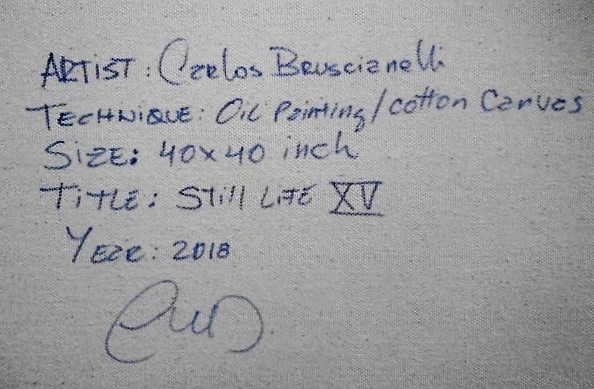 ARTIST: Carlos Bruscianelli
TECHNIQUE: Oil Painting/cotton Canvas
SIZE: 40x40 inch
TITLE: Still LIFE XV
YEAR: 2018